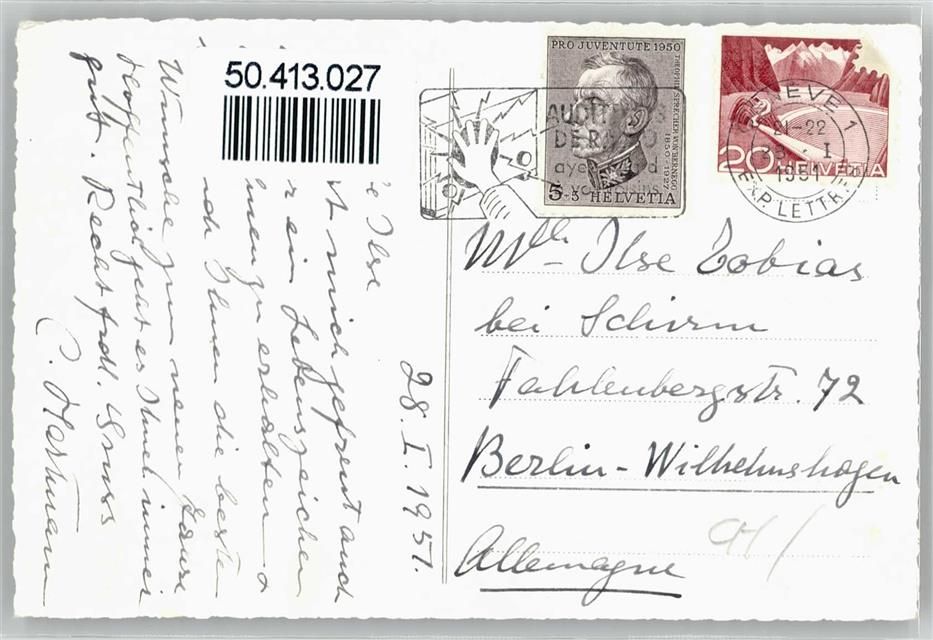 50.413.027
PRO JUVENTUTE 1950
THEOPHIL SPRECHER VON BERNEGG
1850-1927
5+5 HELVETIA
AUDIT
DE RADIO
20 HELVETIA
GENEVE 1
21-22
I
1951
EXP. LETTR.
28. I. 1951.
e Ilse
t mich gefreut auch
r ein Lebenszeichen
zu erhalten &
Ihnen die beste
Wünsche zum neuen Jahre
Hoffentlich geht es Ihnen immer
gut. Recht frdl. Gruss
C. Hartmann
Mlle Ilse Tobias
bei Schirm
Fahlenbergstr. 72
Berlin-Wilhelmshagen
Allemagne